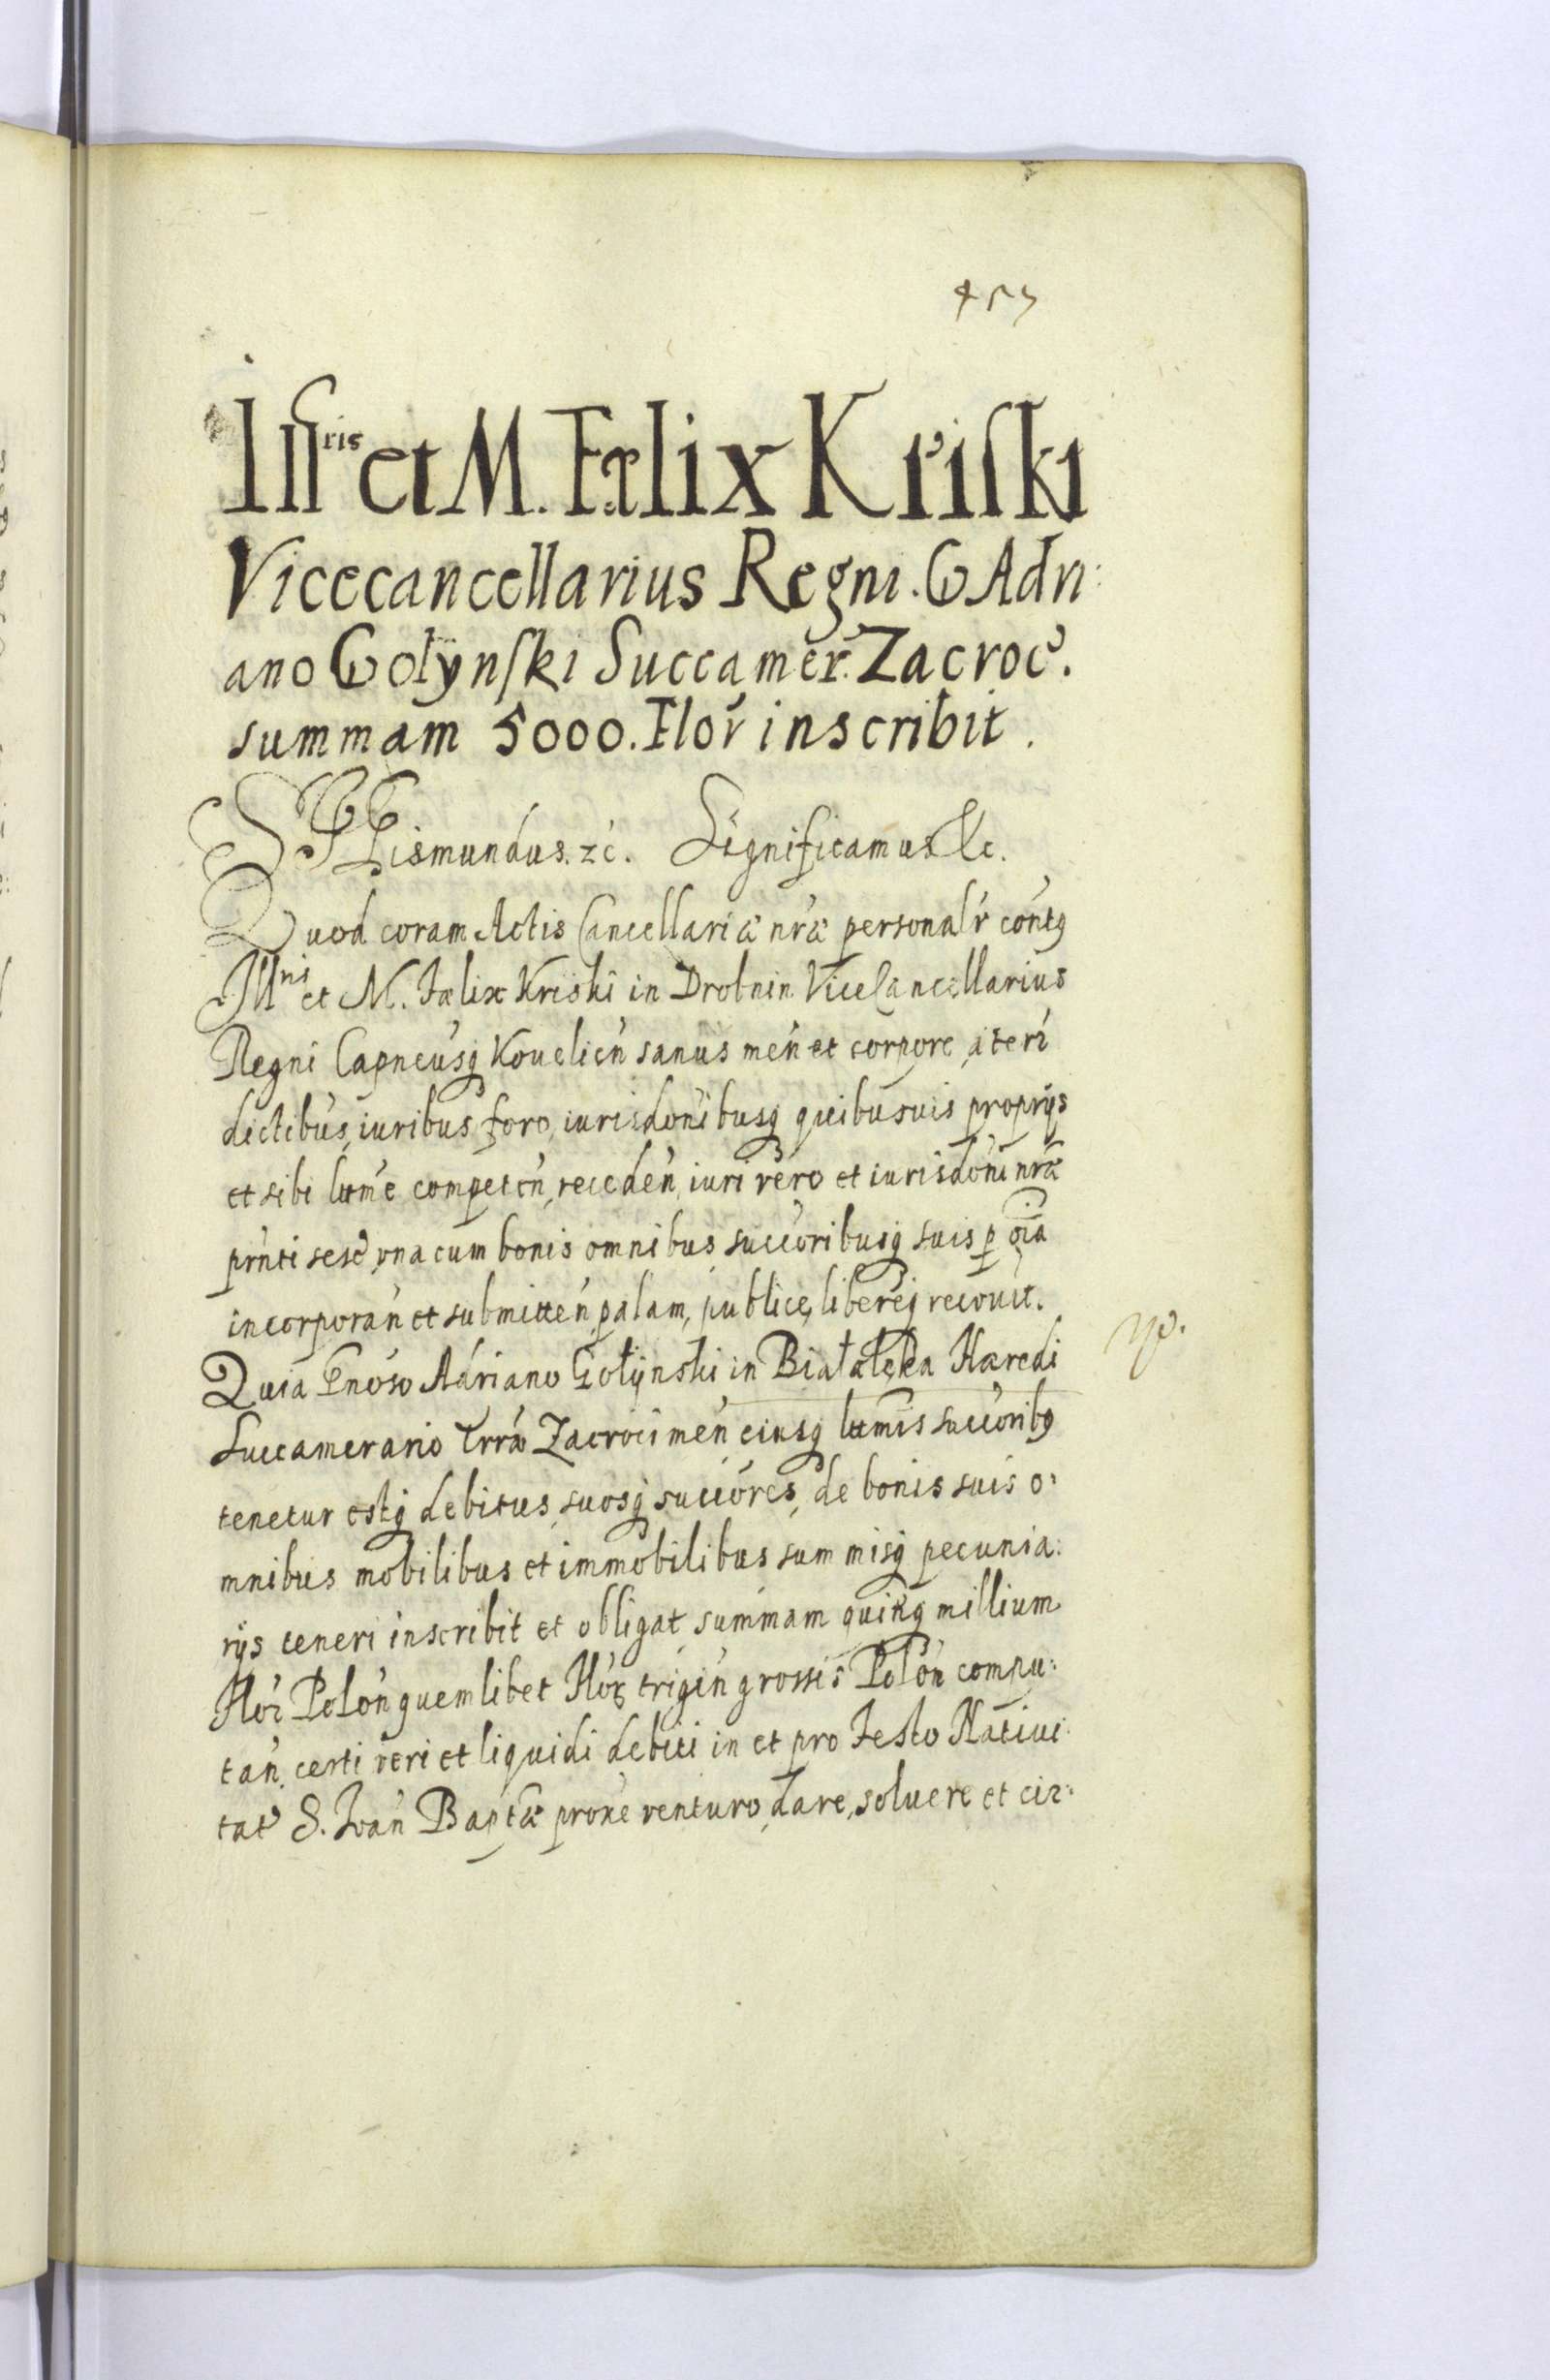 453
Ill^ris et M. Fælix Kriski
Vicecancellarius Regni. G Adri:
ano Gołÿnski Succamer. Zacroc.
summam 5000. Flor inscribit.
SIGismundus. zc. Significamus &c.
Quod coram Actis Cancellariæ nræ personalr contq
Ill^ris et M. Fælix Kriski in Drobnin ViceCancellarius
Regni Capneusq Kouelien sanus men et corpore, a terr
dictibus, iuribus foro, iurisdonibusq quibusuis proprijs
et sibi lttme competen, receden, iuri vero et iurisdoni nræ
prnti sese vna cum bonis omnibus, succoribusq suis p oia
incorporan et submitten, palam, publice, libereq recouit.
Quia Gnoso Adriano Gołÿnski in Białałęka Hæredi
Succamerario Trræ Zacrocimen, eiusq lttmis succoribq
tenetur estq debitus, suosq succores, de bonis suis o:
mnibus mobilibus et immobilibus summisq pecunia:
rijs teneri inscribit et obligat summam quinq millium
Flor Polon quemlibet Flor trigin grossis Polon compu:
tan, certi veri et liquidi debiti in et pro Festo Natiui:
tat S. Joan Baptæ proxe venturo, dare, soluere et eiz: